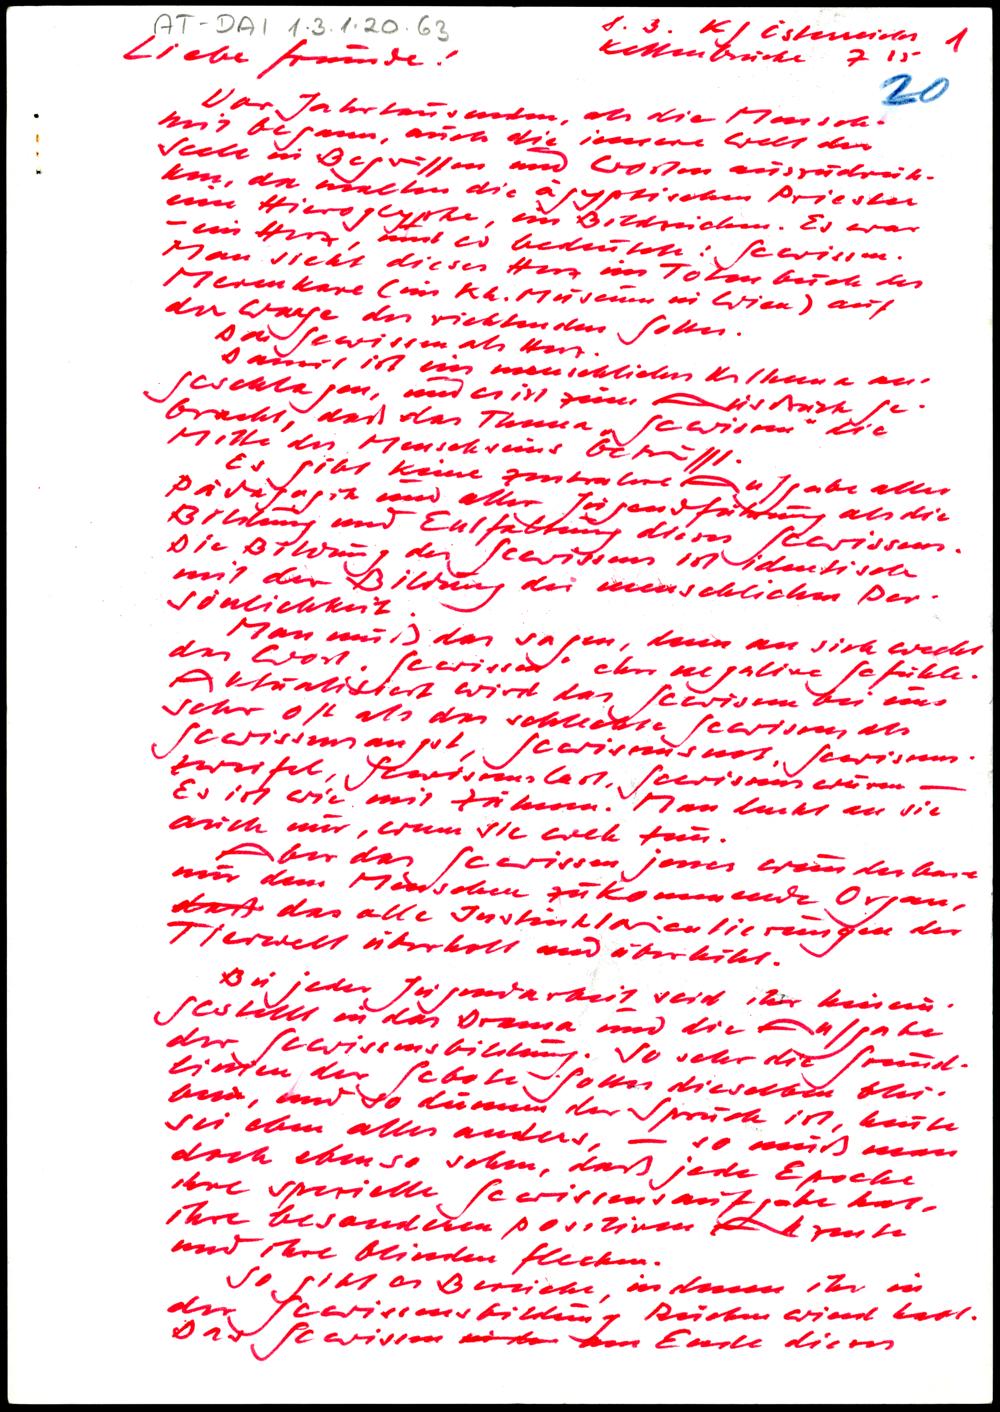 AT-DAI 1.3.1.20.63
8. 3. KJ Österreichs 1
Kettenbrücke 7 15
20
Liebe Freunde!
Vor Jahrtausenden, als die Mensch-
heit begann, auch die innere Welt der
Seele in Begriffen und Worten auszudrük-
ken, da malten die ägyptischen Priester
eine Hieroglyphe, ein Bildzeichen. Es war
- ein Herz, und es bedeutete: Gewissen.
Man sieht dieses Herz im Totenbuch des
Merenkare (im Kh. Museum in Wien) auf
der Waage des richtenden Gottes.
Das Gewissen als Herz.
Damit ist ein menschliches Urthema an-
geschlagen, und es ist zum Ausdruck ge-
bracht, daß das Thema „Gewissen" die
Mitte des Menschseins betrifft.
Es gibt keine zentralere Aufgabe aller
Pädagogik und aller Jugendführung als die
Bildung und Entfaltung dieses Gewissens.
Die Bildung des Gewissens ist identisch
mit der Bildung der menschlichen Per-
sönlichkeit.
Man muß das sagen, denn an sich weckt
das Wort „Gewissen" eher negative Gefühle.
Aktualisiert wird das Gewissen bei uns
sehr oft als das schlechte Gewissen als
Gewissensangst, Gewissensnot, Gewissens-
zweifel, Gewissenslast, Gewissenswurm —
Es ist wie mit Zähnen. Man denkt an sie
auch nur, wenn sie weh tun.
Aber das Gewissen jenes wunderbare
nur dem Menschen zukommende Organ,
das alle Instinktorientierungen der
Tierwelt überholt und überhöht.
Bei jeder Jugendarbeit seid ihr hinein-
gestellt in das Drama und die Aufgabe
der Gewissensbildung. So sehr die Grund-
linien der Gebote Gottes dieselben blei-
ben, und so dumm der Spruch ist, heute
sei eben alles anders, — so muß man
doch ebenso sehen, daß jede Epoche
ihre spezielle Gewissensaufgabe hat,
ihre besonderen positiven Akzente
und ihre blinden Flecken.
So gibt es Bereiche, in denen ihr in
der Gewissensbildung Rückenwind habt.
Das Gewissen am Ende dieses